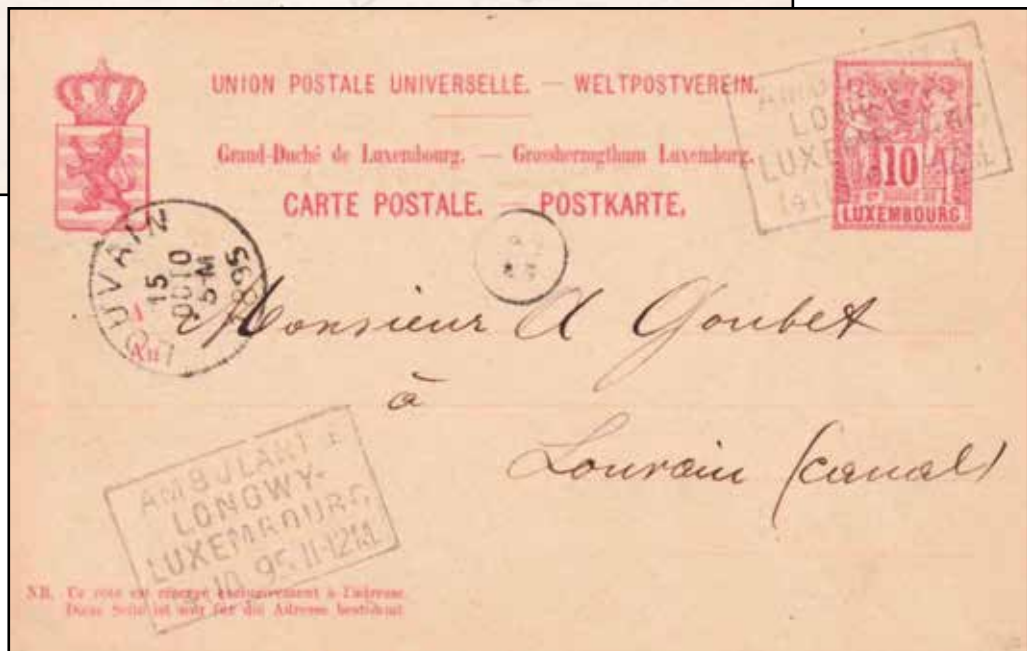 UNION POSTALE UNIVERSELLE. — WELTPOSTVEREIN.
Grand-Duché de Luxembourg. — Grossherzogthum Luxemburg.
CARTE POSTALE. — POSTKARTE.
10
LUXEMBOURG
LOUVAIN
15
OCT 10
5-M
1895
Monsieur A Goubet
à
Louvain (canal)
AMBULANT
LONGWY-
LUXEMBOURG
10 95 11-12 M.
NB. Ce côté est réservé exclusivement à l'adresse.
Diese Seite ist nur für die Adresse bestimmt